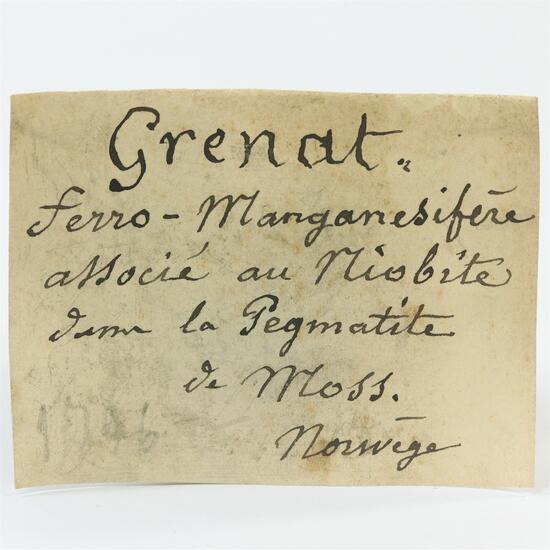 Grenat.
ferro-Manganesifère
associé au Niobite
dans la Pegmatite
de Moss.
Norwège